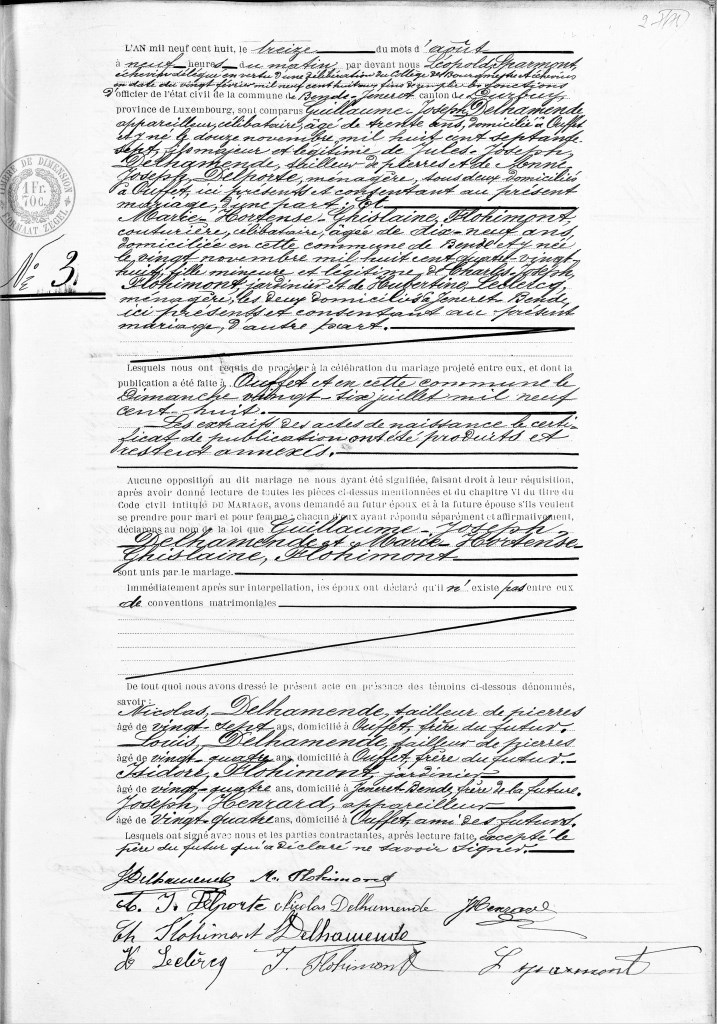 2
TIMBRE DE DIMENSION
1 Fr. 70c.
FORMAAT ZEGEL
N° 3.
L'AN mil neuf cent huit, le treize du mois d'août
à neuf heures du matin par devant nous Léopold Sparmont,
échevin délégué en vertu d'une délibération du Collège des Bourgmestre et échevins
en date du vingt février mil neuf cent huit aux fins de remplir les fonctions
D'officier de l'état civil de la commune de Bende-Jeneret canton de Durbuy
province de Luxembourg, sont comparus Guillaume-Joseph, Delhamende
appareilleur, célibataire, âgé de trente ans, domicilié à Ouffet
et y né le douze novembre mil huit cent septante-
sept, fils majeur et légitime de Jules-Joseph,
Delhamende, tailleur de pierres et de Anne-
Joseph, Delporte, ménagère, tous deux domiciliés
à Ouffet, ici présents et consentant au présent
mariage, d'une part; Et
Marie-Hortense-Ghislaine, Flohimont,
couturière, célibataire, âgée de dix-neuf ans,
domiciliée en cette commune de Bende et y née
le vingt novembre mil huit cent quatre-vingt-
huit, fille mineure et légitime de Charles-Joseph
Flohimont, jardinier et de Hubertine, Leclercq,
ménagère, les deux domiciliés à Jeneret-Bende,
ici présents et consentant au présent
mariage, d'autre part.
Lesquels nous ont requis de procéder à la célébration du mariage projeté entre eux, et dont la
publication a été faite à Ouffet et en cette commune le
Dimanche vingt-six juillet mil neuf
cent-huit.
Les extraits des actes de naissance le certi-
ficat de publication ont été produits et
restent annexés.
Aucune opposition au dit mariage ne nous ayant été signifiée, faisant droit à leur réquisition,
après avoir donné lecture de toutes les pièces ci-dessus mentionnées et du chapitre VI du titre du
Code civil intitulé DU MARIAGE, avons demandé au futur époux et à la future épouse s'ils veulent
se prendre pour mari et pour femme; chacun d'eux ayant répondu séparément et affirmativement,
déclarons au nom de la loi que Guillaume-Joseph
Delhamende et Marie-Hortense-
Ghislaine, Flohimont
sont unis par le mariage.
Immédiatement après sur interpellation, les époux ont déclaré qu'il n'existe pas entre eux
de conventions matrimoniales
De tout quoi nous avons dressé le présent acte en présence des témoins ci-dessous dénommés,
savoir:
Nicolas, Delhamende, tailleur de pierres
âgé de vingt-sept ans, domicilié à Ouffet, frère du futur.
Louis, Delhamende, tailleur de pierres
âgé de vingt-quatre ans, domicilié à Ouffet, frère du futur.
Isidore, Flohimont, jardinier
âgé de vingt-quatre ans, domicilié à Jeneret-Bende, frère de la future.
Joseph, Henrard, appareilleur
âgé de vingt-quatre ans, domicilié à Ouffet, ami des futurs.
Lesquels ont signé avec nous et les parties contractantes, après lecture faite, excepté le
père du futur qui a déclaré ne savoir signer.
J Delhamende M. Flohimont
A. J. Delporte Nicolas Delhamende J Henrard
Ch Flohimont L Delhamende
H Leclercq I. Flohimont L Sparmont